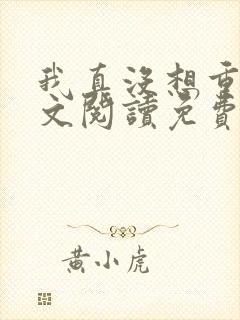 我真没想重
文閱讀免費
黃小虎